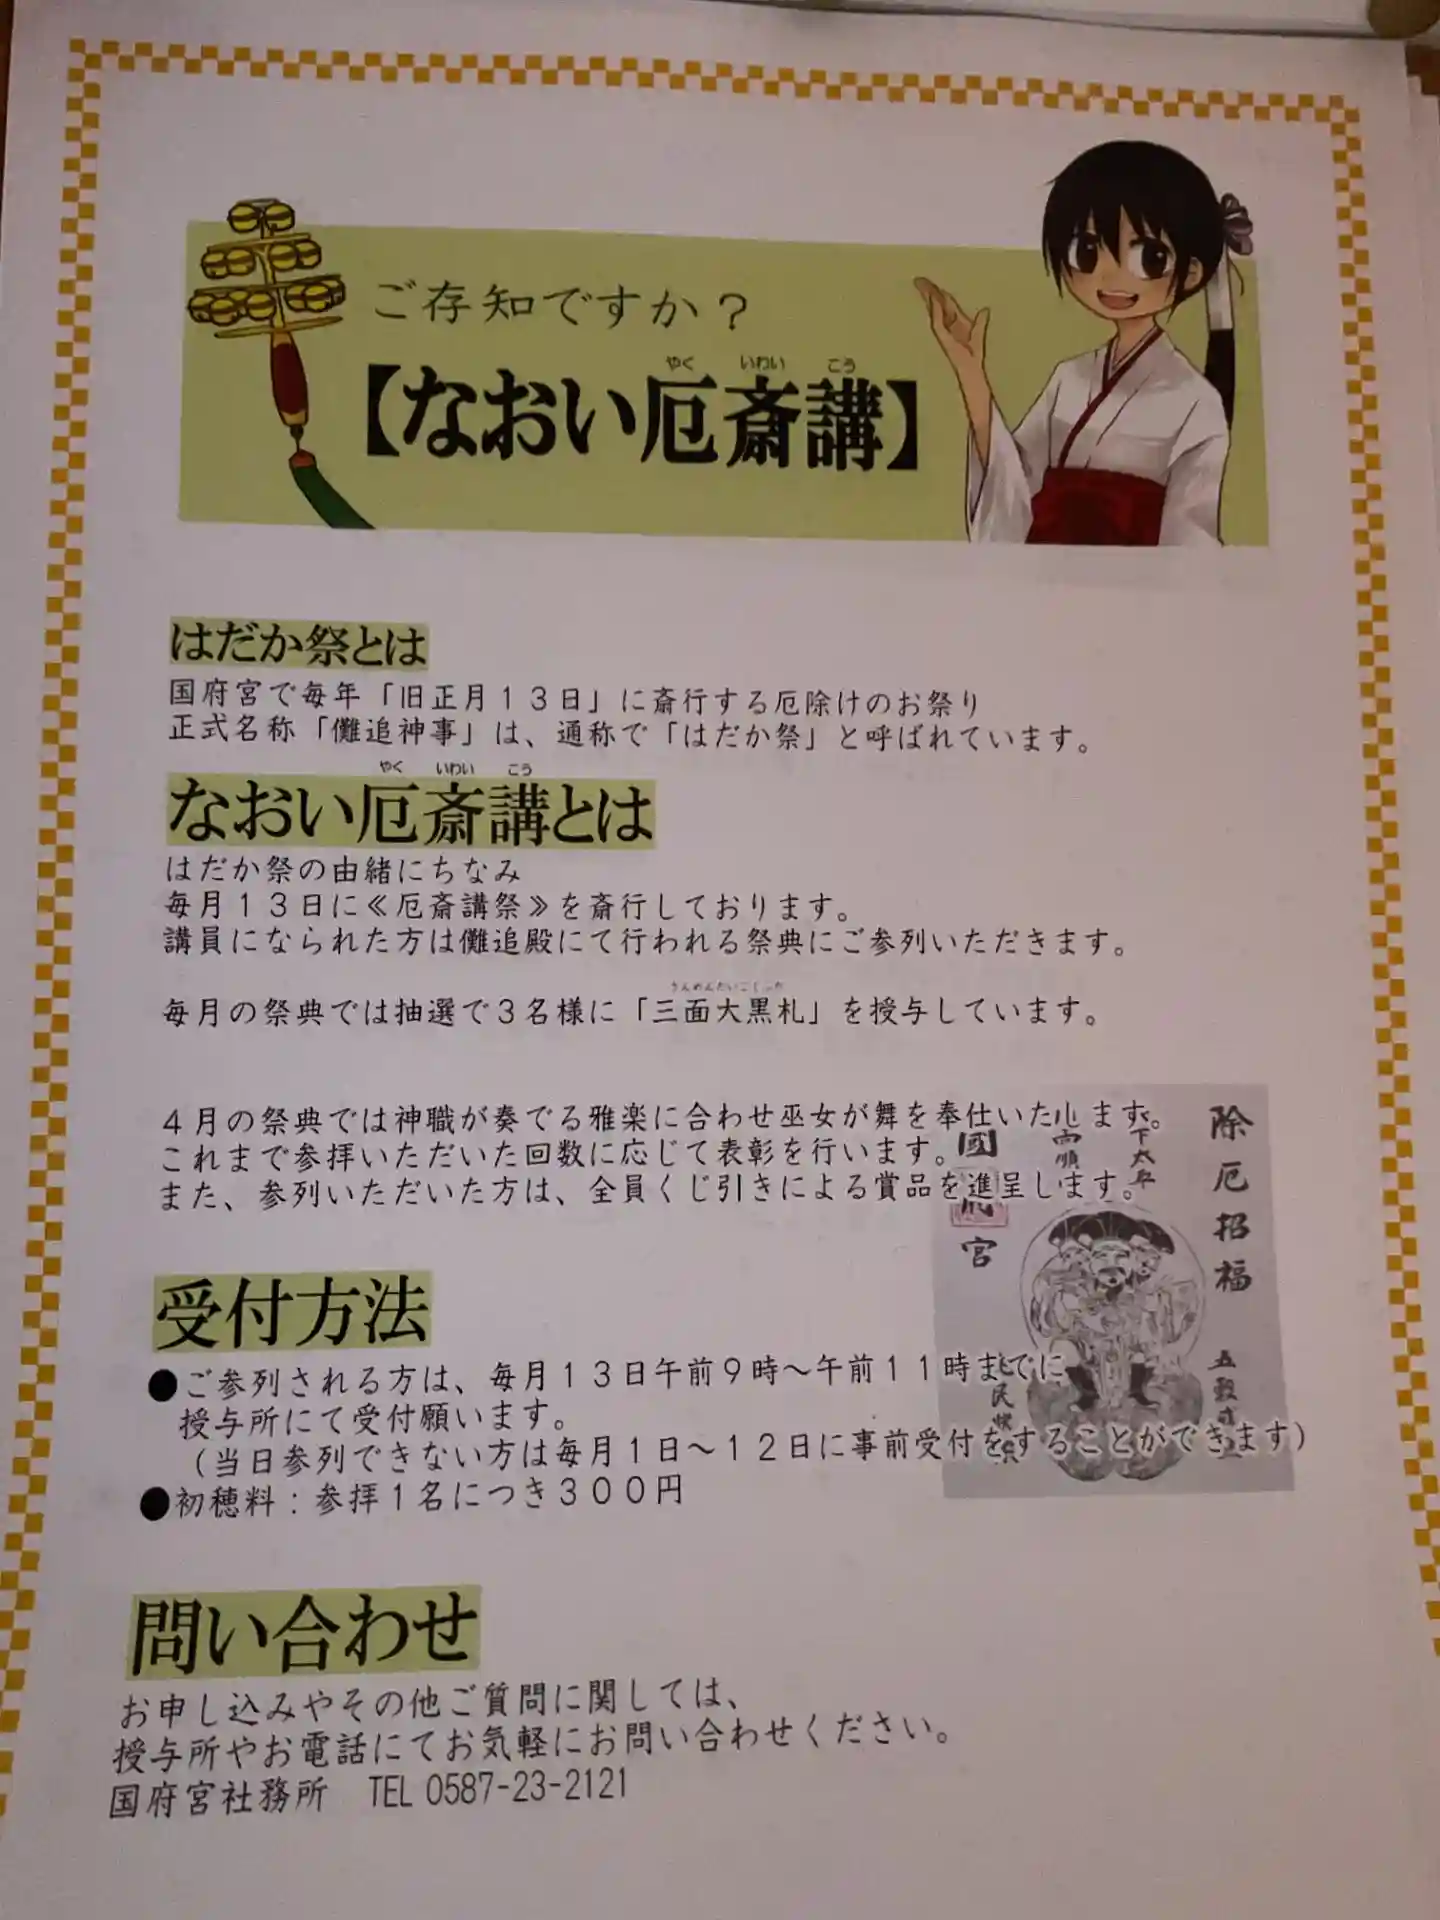 ご存知ですか？
やく いわい こう
【なおい厄斎講】
はだか祭とは
国府宮で毎年「旧正月１３日」に斎行する厄除けのお祭り
正式名称「儺追神事」は、通称で「はだか祭」と呼ばれています。
やく いわい こう
なおい厄斎講とは
はだか祭の由緒にちなみ
毎月１３日に≪厄斎講祭≫を斎行しております。
講員になられた方は儺追殿にて行われる祭典にご参列いただきます。
毎月の祭典では抽選で３名様に「三面大黒札」を授与しています。
４月の祭典では神職が奏でる雅楽に合わせ巫女が舞を奉仕いたします。
これまで参拝いただいた回数に応じて表彰を行います。
また、参列いただいた方は、全員くじ引きによる賞品を進呈します。
除厄招福
國
宮
受付方法
●ご参列される方は、毎月１３日午前９時～午前１１時までに
授与所にて受付願います。
（当日参列できない方は毎月１日～１２日に事前受付をすることができます）
●初穂料：参拝１名につき３００円
問い合わせ
お申し込みやその他ご質問に関しては、
授与所やお電話にてお気軽にお問い合わせください。
国府宮社務所　TEL 0587-23-2121